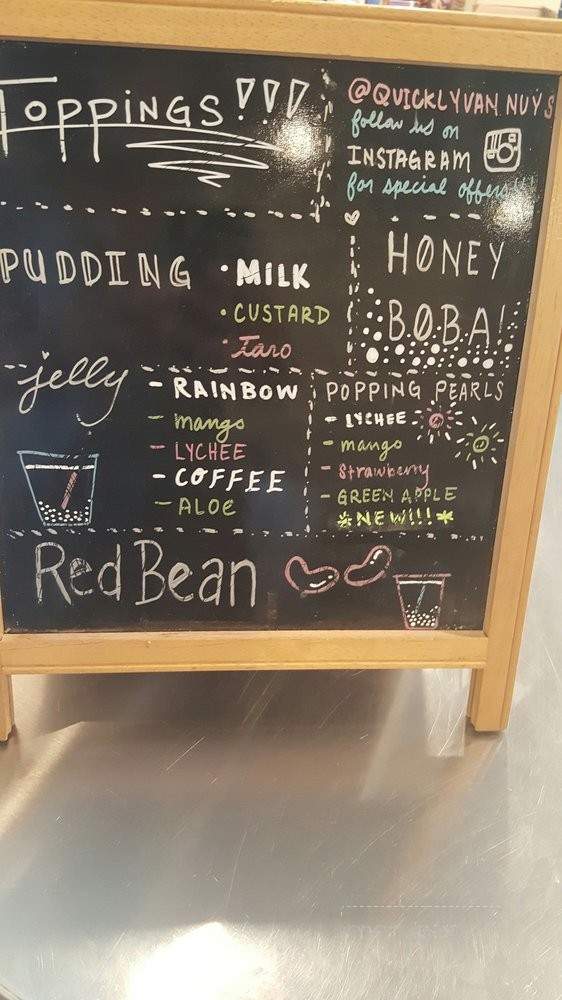 TOPPINGS!!!
@QUICKLYVAN NUYS
follow us on
INSTAGRAM
for special offers!!!
PUDDING
• MILK
• CUSTARD
• Taro
HONEY
BOBA!
jelly
- RAINBOW
- mango
- LYCHEE
- COFFEE
- ALOE
POPPING PEARLS
- LYCHEE
- mango
- strawberry
- GREEN APPLE
*NEW!!!*
Red Bean